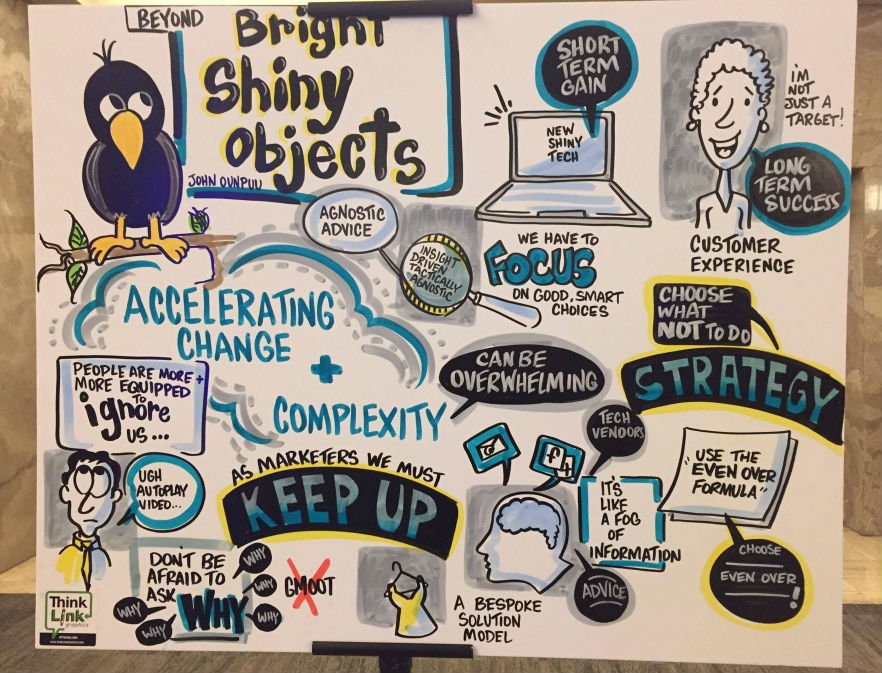 BEYOND
Bright
Shiny
Objects
JOHN OUNPUU
SHORT
TERM
GAIN
NEW
SHINY
TECH
I'M
NOT
JUST A
TARGET!
LONG
TERM
SUCCESS
CUSTOMER
EXPERIENCE
AGNOSTIC
ADVICE
INSIGHT
DRIVEN
TACTICALLY
AGNOSTIC
WE HAVE TO
FOCUS
ON GOOD, SMART
CHOICES
ACCELERATING
CHANGE
+
COMPLEXITY
CAN BE
OVERWHELMING
CHOOSE
WHAT
NOT TO DO
STRATEGY
PEOPLE ARE MORE +
MORE EQUIPPED
TO
ignore
US...
UGH
AUTOPLAY
VIDEO...
AS MARKETERS WE MUST
KEEP UP
TECH
VENDORS
IT'S
LIKE
A FOG
OF
INFORMATION
ADVICE
"USE THE
EVEN OVER
FORMULA"
CHOOSE
EVEN OVER
!
DON'T BE
AFRAID TO
ASK WHY
WHY
WHY
WHY
WHY
WHY
GMOOT
A BESPOKE
SOLUTION
MODEL
Think
Link
graphics